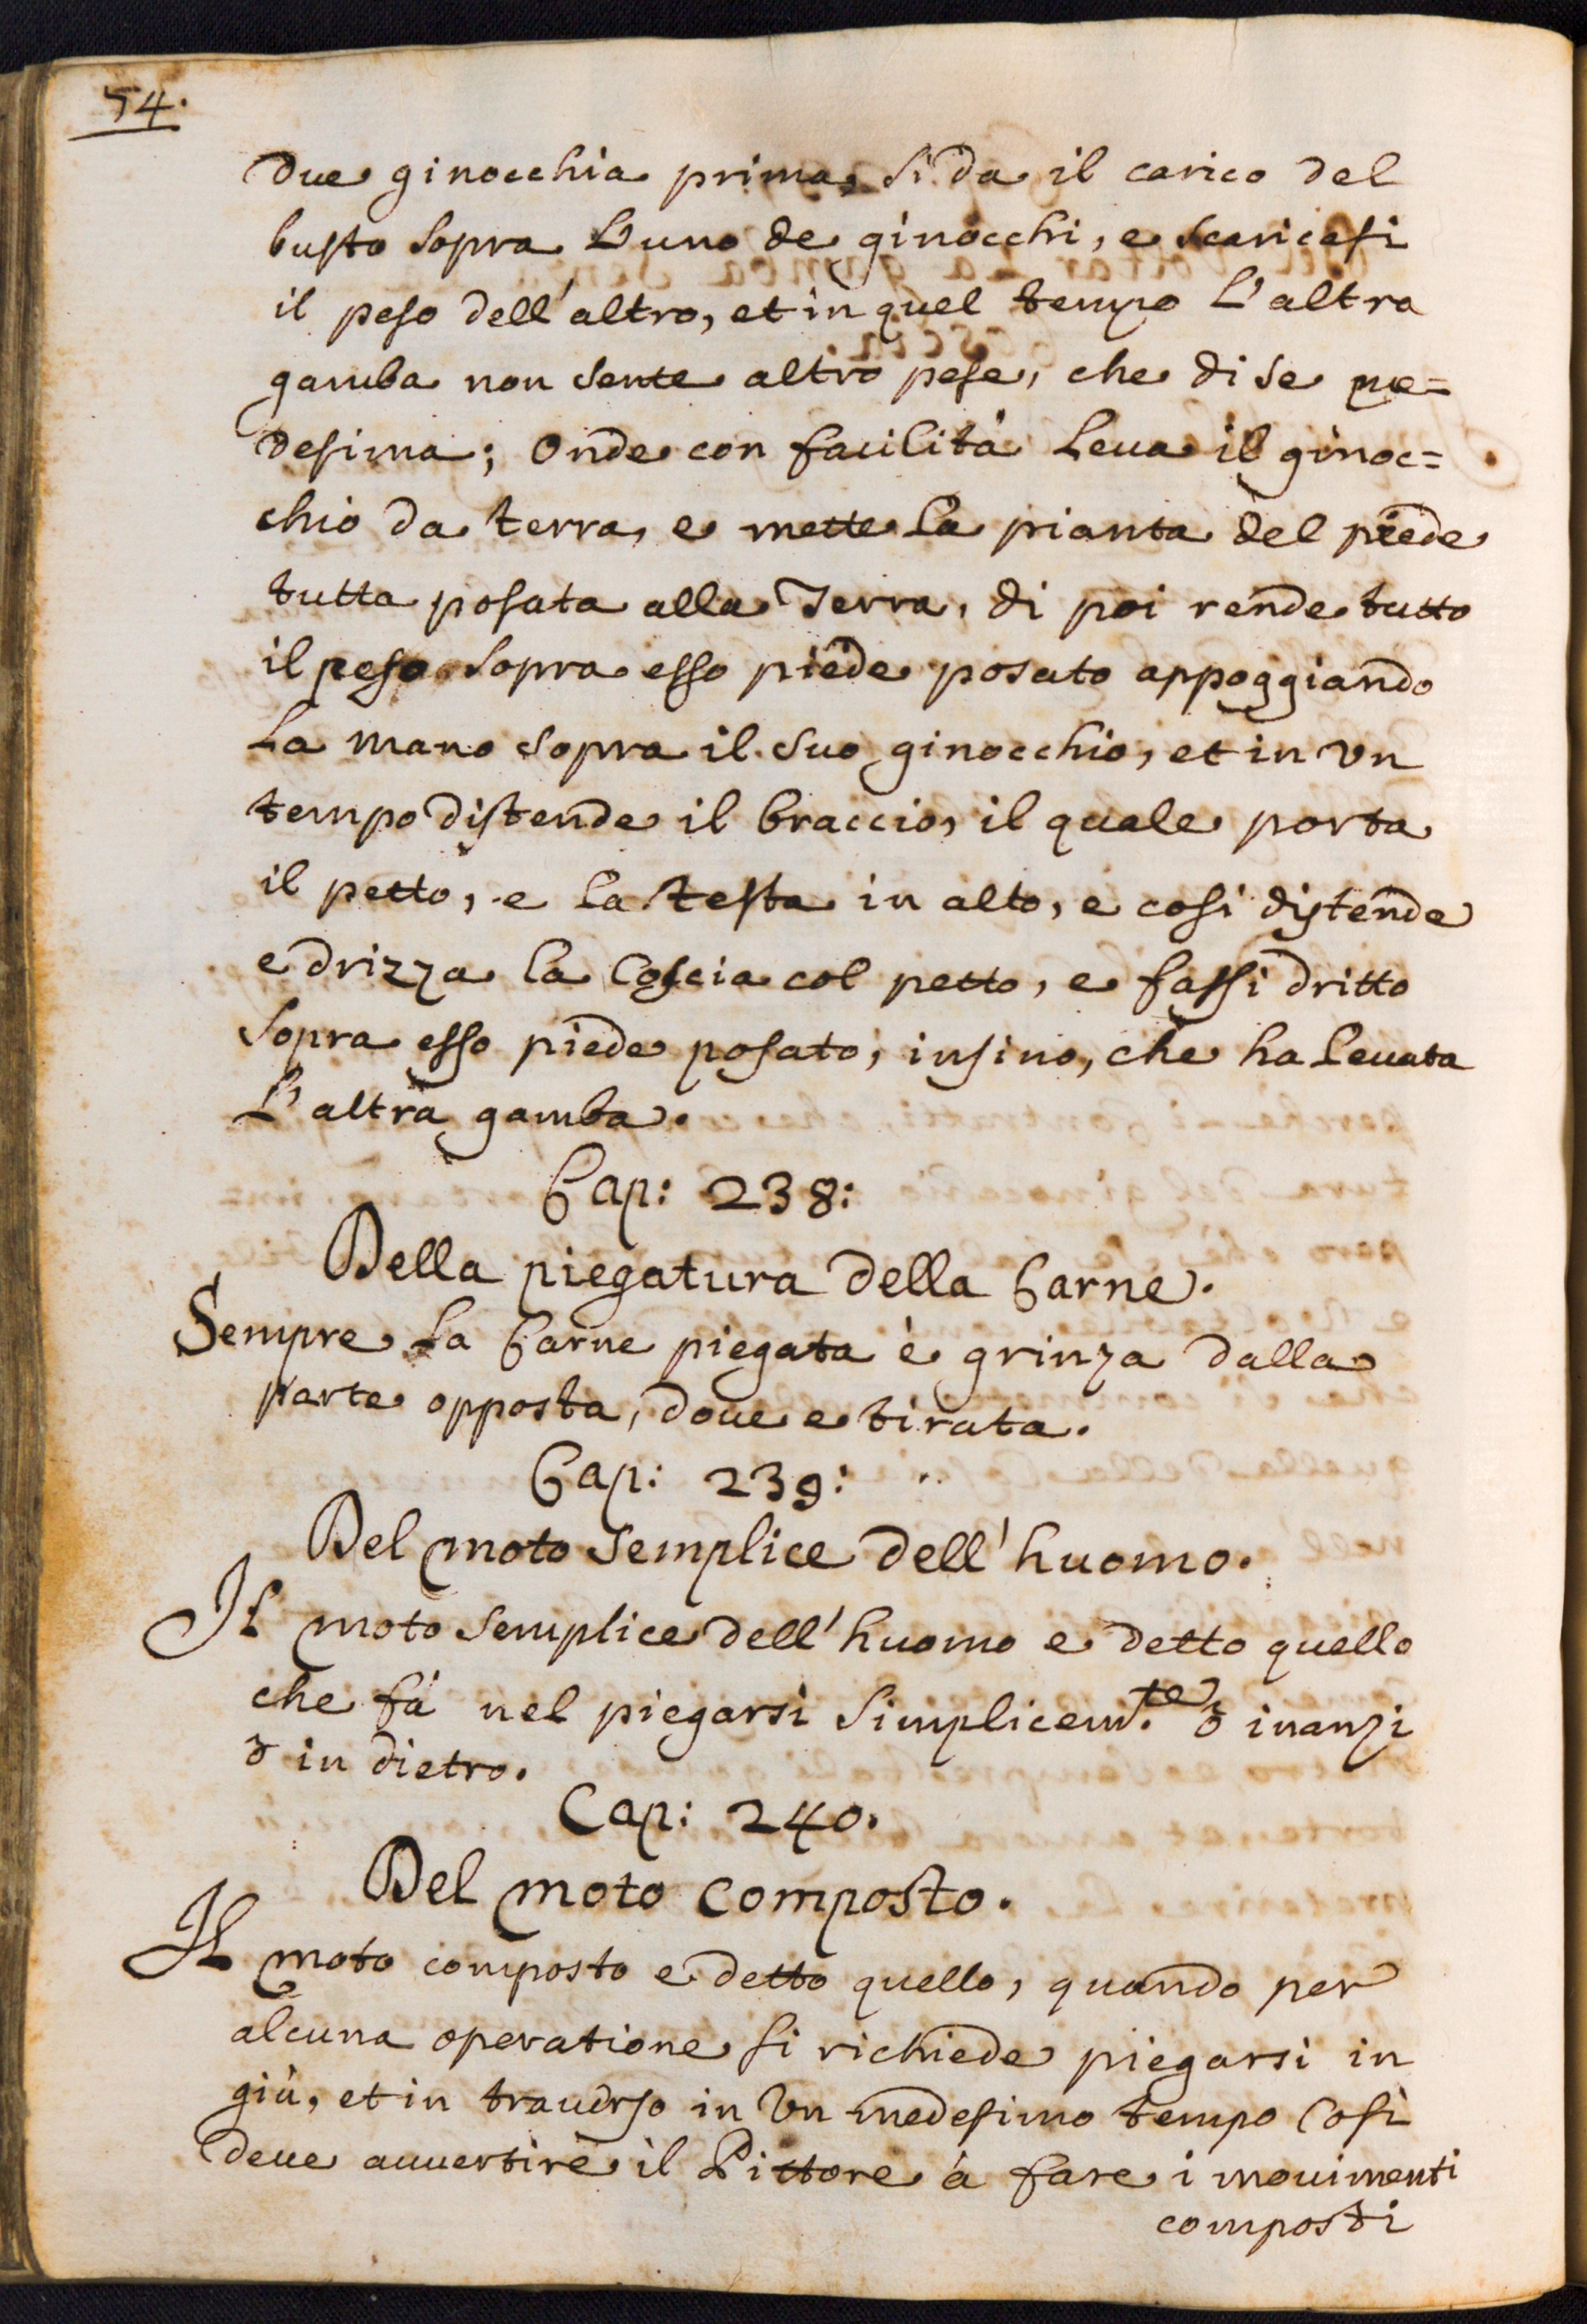 54.
due ginocchia prima, si da il carico del
busto sopra L'uno de ginocchi, e scaricasi
il peso dell'altro, et in quel tempo L'altra
gamba non sente altro peso, che di se me=
desima; Onde con facilità Leua il ginoc=
chio da terra, e mette la pianta del piede
tutta posata alla Terra, di poi rende tutto
il peso sopra esso piede posato appoggiando
La mano sopra il suo ginocchio, et in vn
tempo distende il braccio, il quale porta
il petto, e la testa in alto, e cosi distende
e drizza la Coscia col petto, e fassi dritto
sopra esso piede posato, insino, che ha leuata
L'altra gamba.
Cap: 238:
Della piegatura della Carne.
Sempre La Carne piegata è grinza dalla
parte opposta, doue e tirata.
Cap: 239:
Del moto semplice dell'huomo.
Il moto semplice dell'huomo e detto quello
che fà nel piegarsi simplicem.te ò inanzi
ò in dietro.
Cap: 240.
Del moto composto.
Il moto composto e detto quello, quando per
alcuna operatione si richiede piegarsi in
giù, et in trauerso in Vn medesimo tempo Cosi
deue auuertire il Pittore à fare i mouimenti
composti